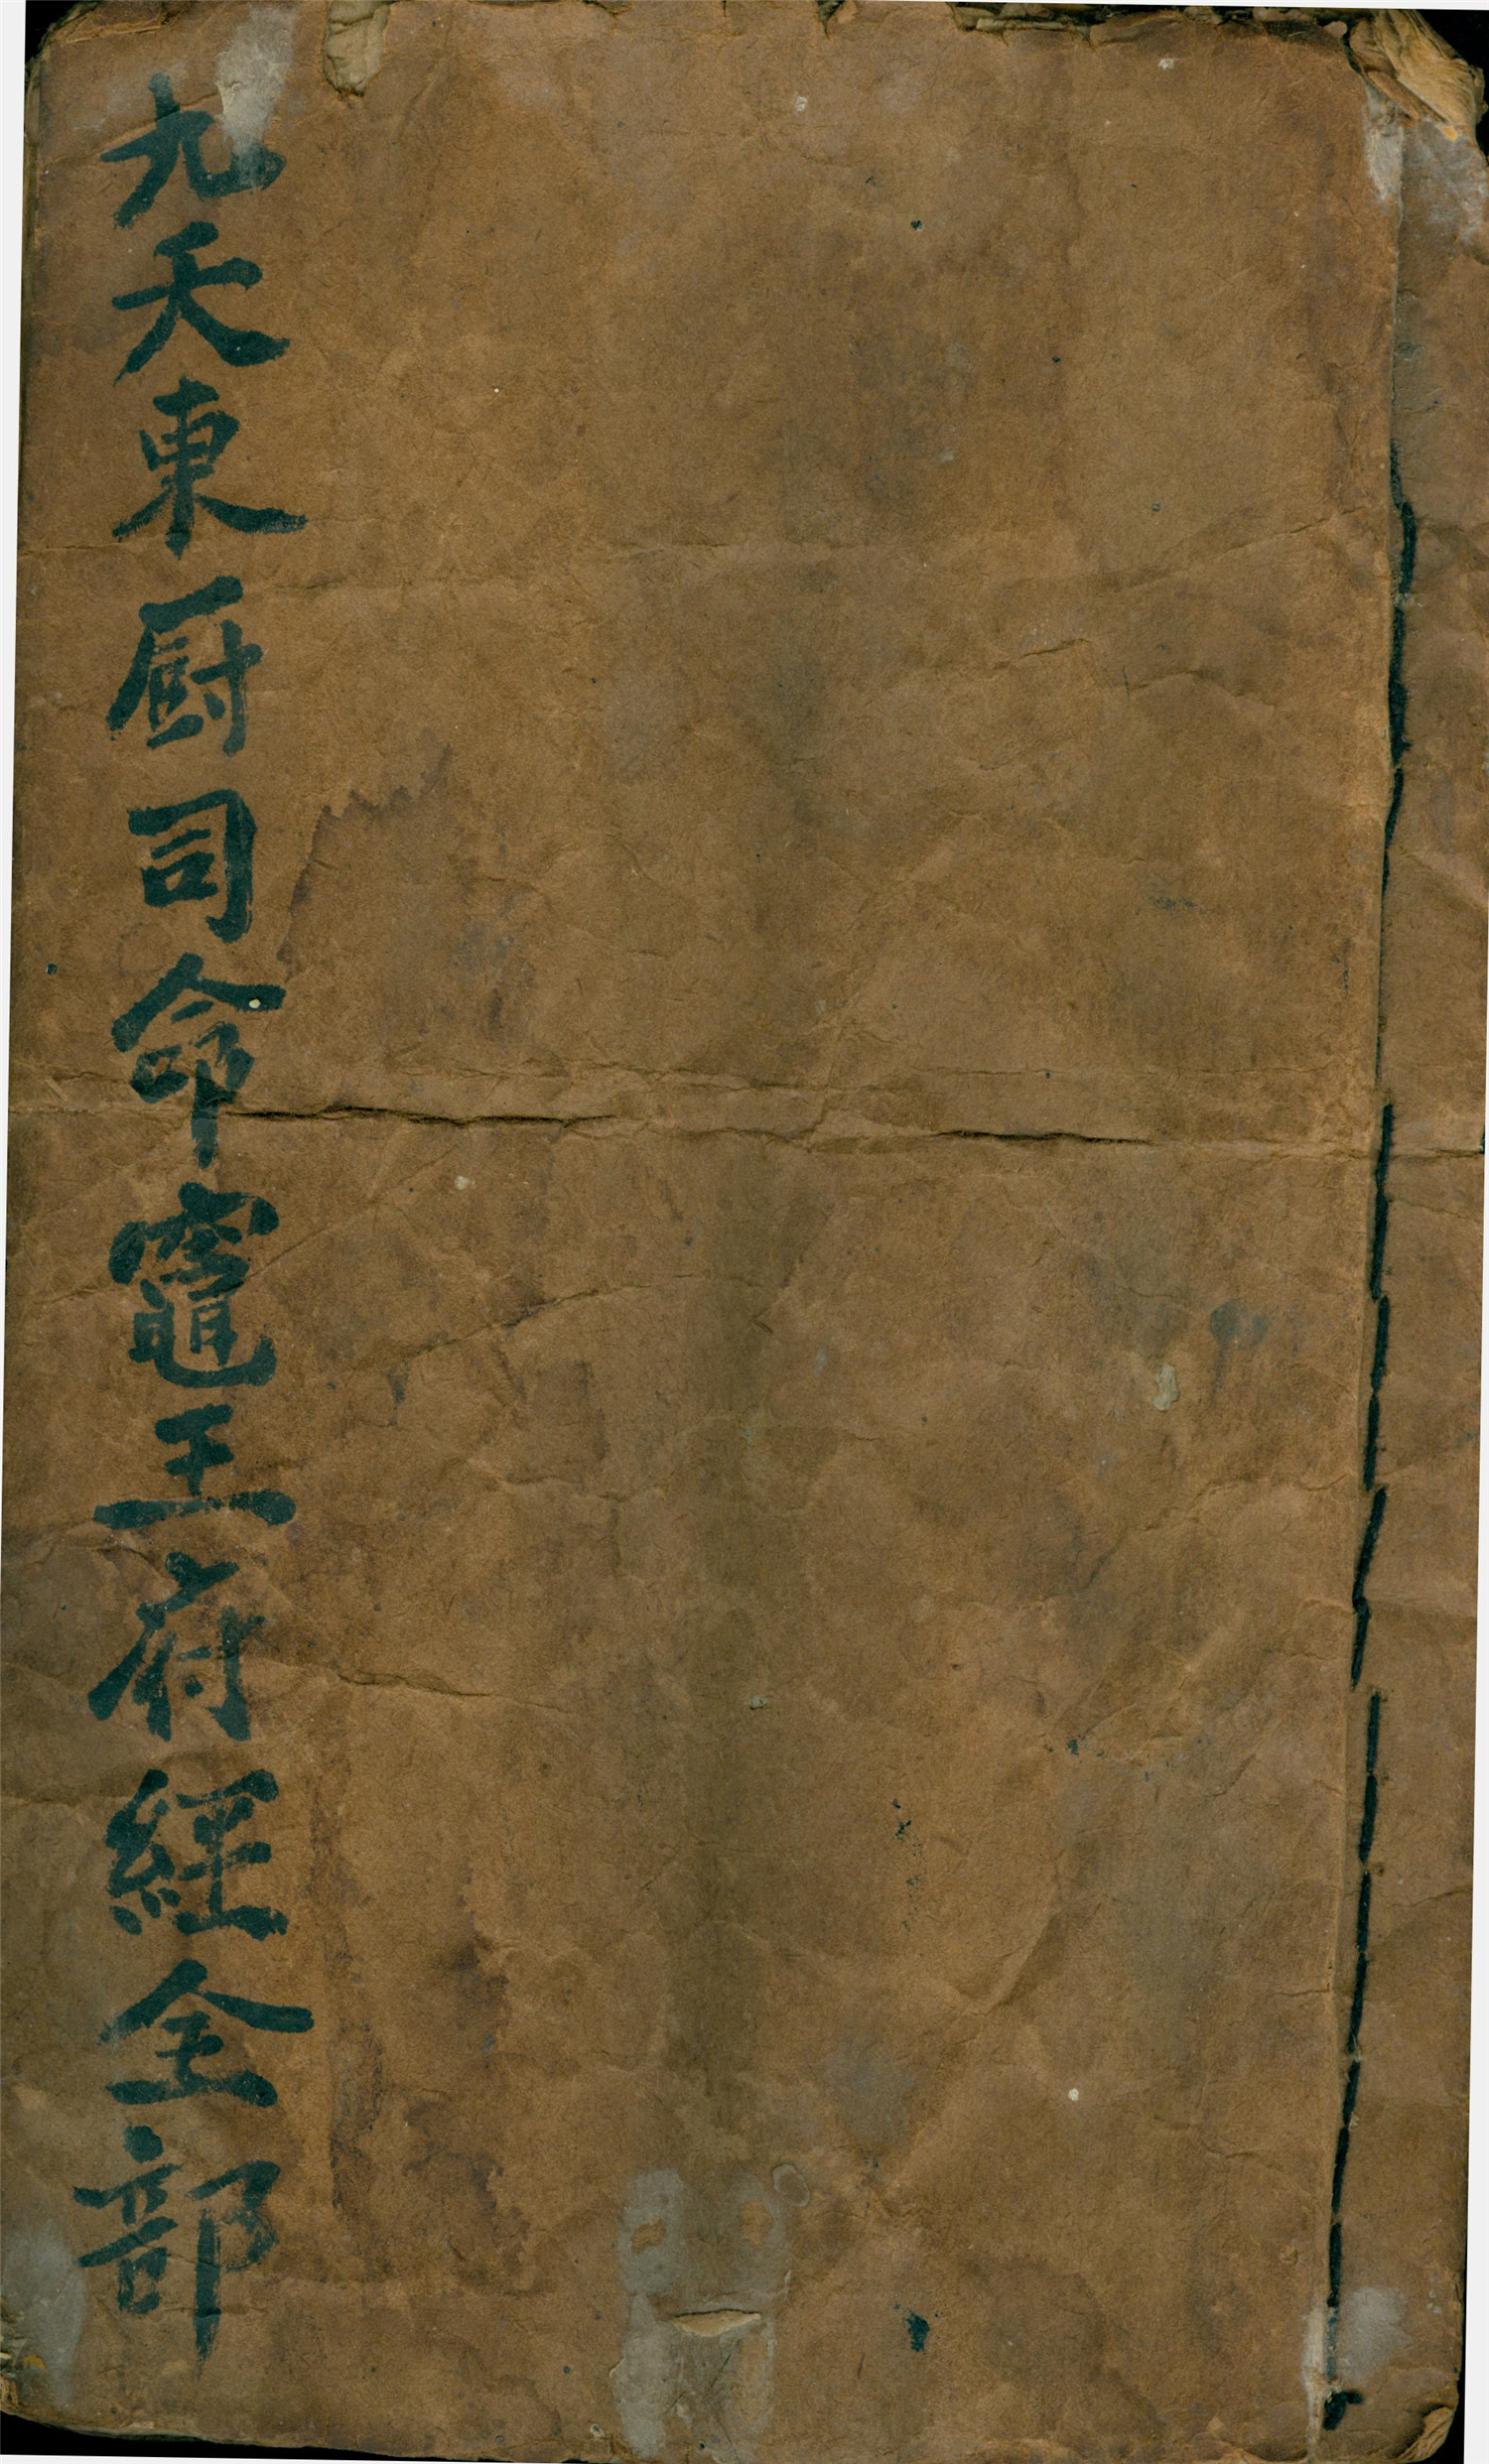 九天東厨司命竈王府經全部